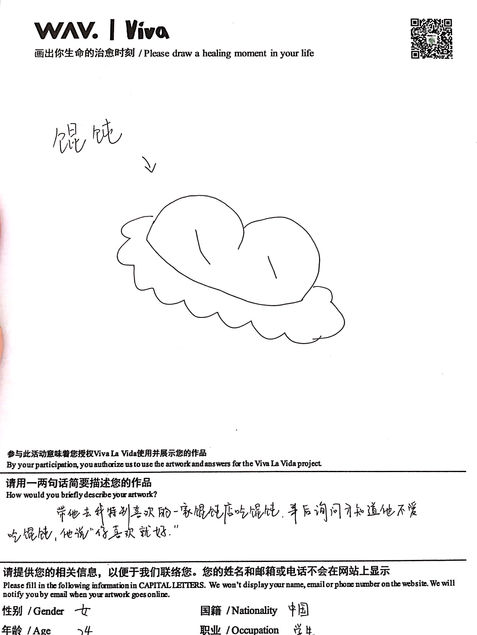 WAV. | Viva
画出你生命的治愈时刻 / Please draw a healing moment in your life
馄饨
参与此活动意味着您授权Viva La Vida使用并展示您的作品
By your participation, you authorize us to use the artwork and answers for the Viva La Vida project.
请用一两句话简要描述您的作品
How would you briefly describe your artwork?
带他去我特别喜欢的一家馄饨店吃馄饨,事后询问才知道他不爱
吃馄饨,他说“你喜欢就好.”
请提供您的相关信息,以便于我们联络您。您的姓名和邮箱或电话不会在网站上显示
Please fill in the following information in CAPITAL LETTERS. We won't display your name, email or phone number on the website. We will
notify you by email when your artwork goes online.
性别 / Gender 女 国籍 / Nationality 中国
年龄 / Age 24 职业 / Occupation 学生